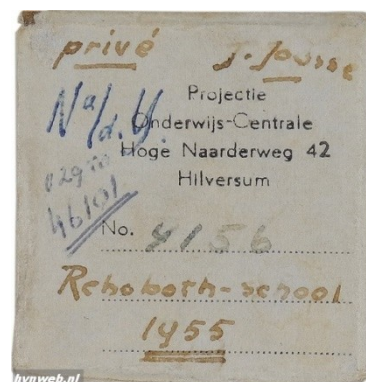 privé J. Jousse
Na/d. V.
Projectie
Onderwijs-Centrale
Hoge Naarderweg 42
Hilversum
46101
No. 4156
Rehoboth-school
1955
hvnweb.nl